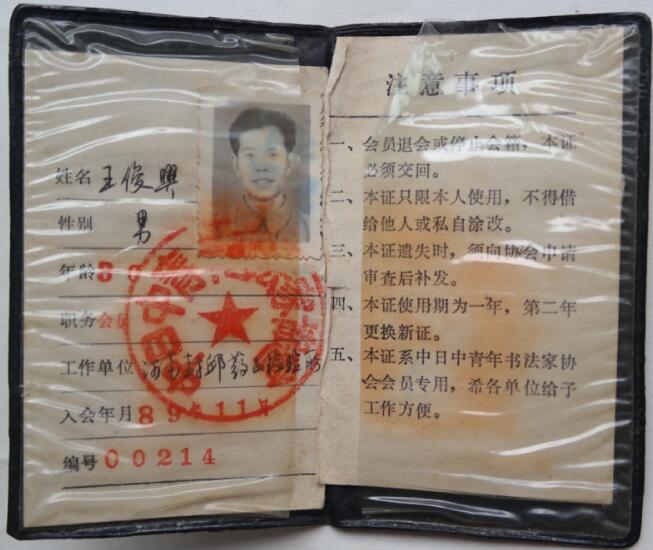 姓名 王俊兴
性别 男
年龄 3
职务 会员
工作单位 河南封邱药品检验所
入会年月 89年11月
编号 00214
注意事项
一、会员退会或停止会籍，本证
必须交回。
二、本证只限本人使用，不得借
给他人或私自涂改。
三、本证遗失时，须向协会申请
审查后补发。
四、本证使用期为一年，第二年
更换新证。
五、本证系中日中青年书法家协
会会员专用，希各单位给予
工作方便。